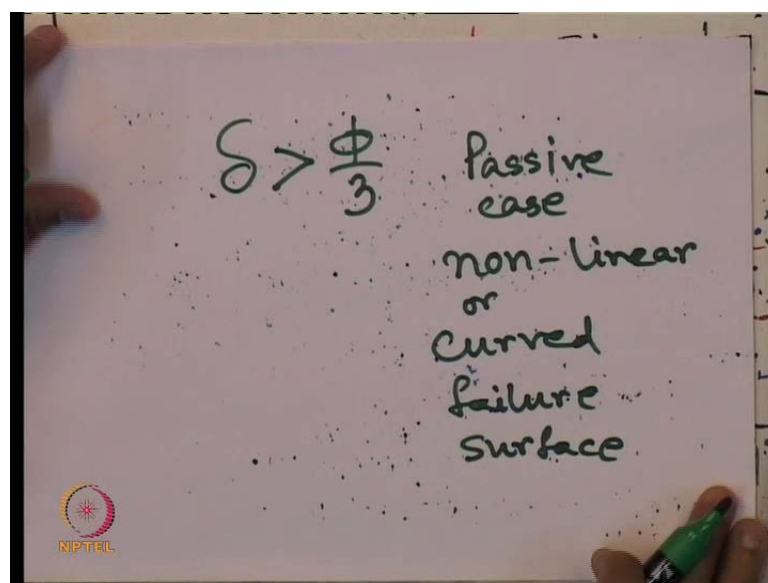 δ > φ/3 Passive
case
non-linear
or
curved
failure
surface
NPTEL